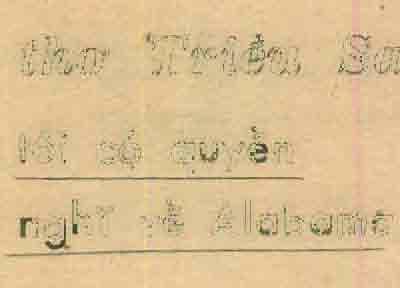 thơ Triều Sa
tôi có quyền
nghĩ về Alabama